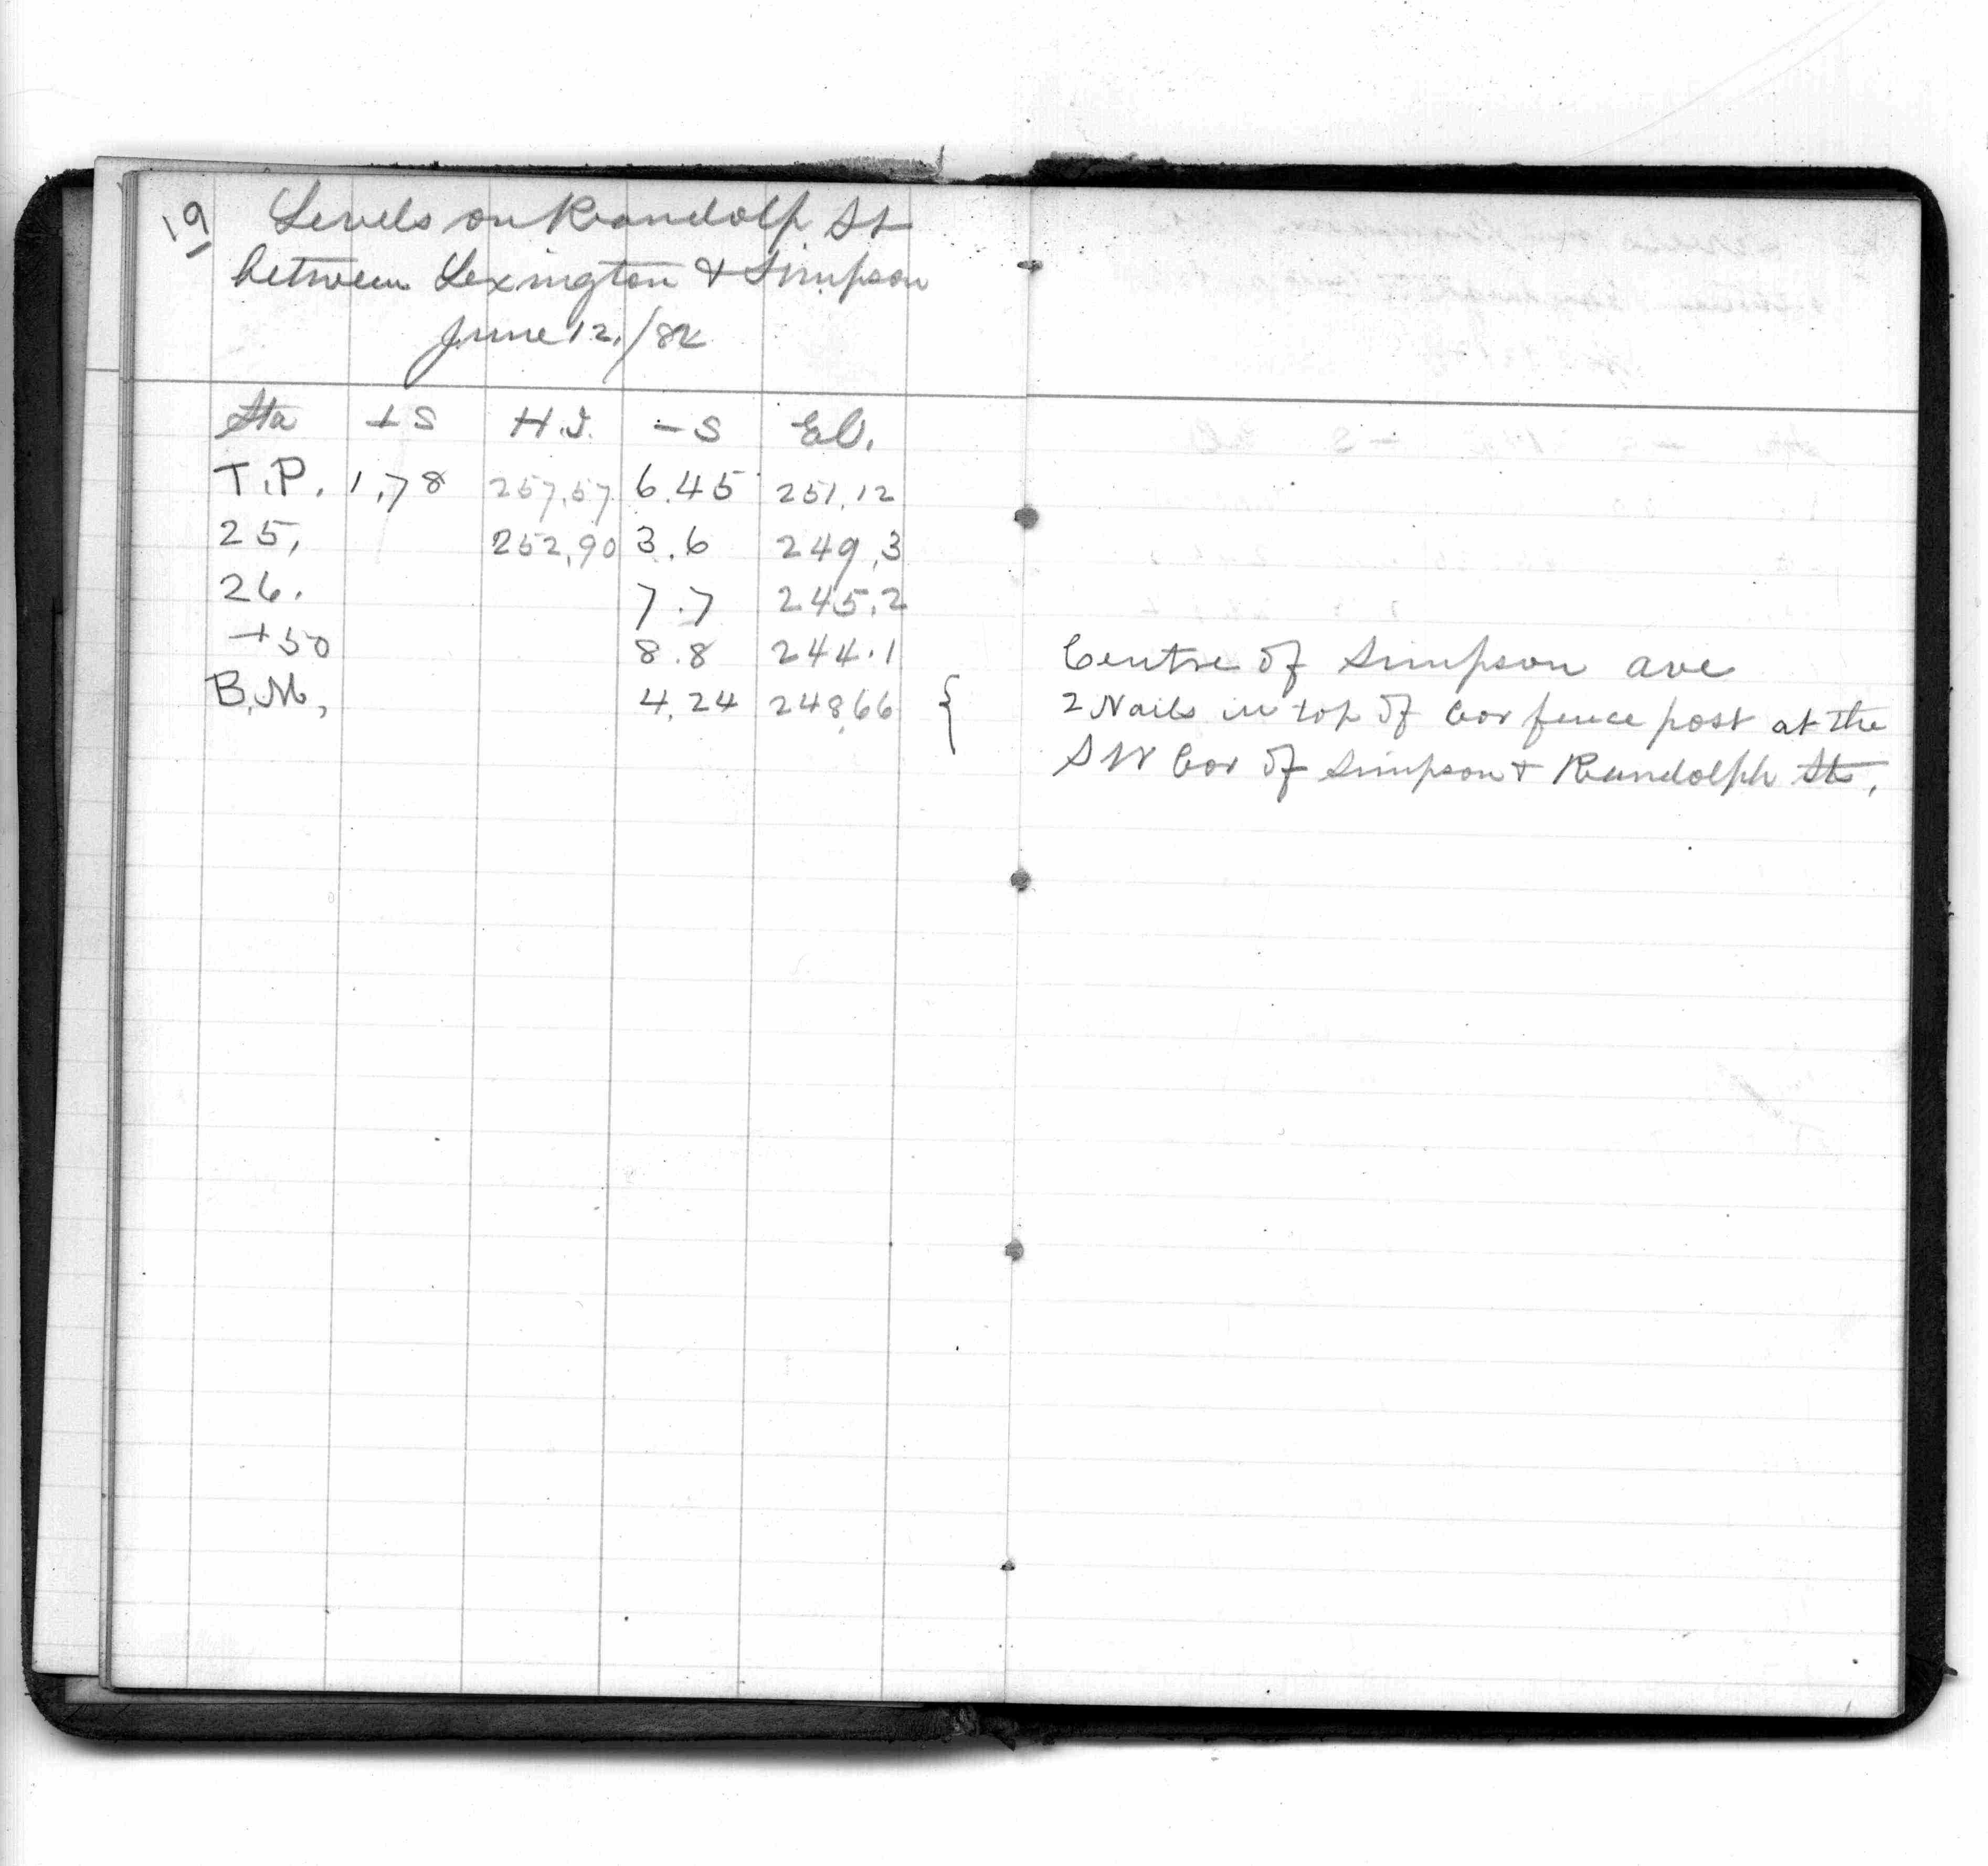 19 Levels on Randolph St
between Lexington & Simpson
June 12, /82
Sta +S H.I. -S El.
T.P. 1.78 257.57 6.45 251.12
25, 252.90 3.6 249.3
26. 7.7 245.2
+50 8.8 244.1 Centre of Simpson ave
B.M, 4.24 248.66 { 2 Nails in top of Cor fence post at the
SW Cor of Simpson & Randolph Sts,